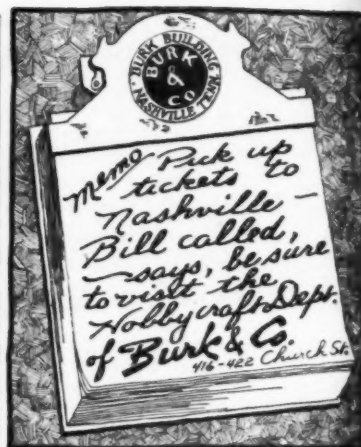 BURK BUILDING
BURK
&
CO
NASHVILLE TENN.
Memo Pick up
tickets to
Nashville —
Bill called,
— says, be sure
to visit the
Hobbycraft Dept.
of Burk & Co.
416-422 Church St.